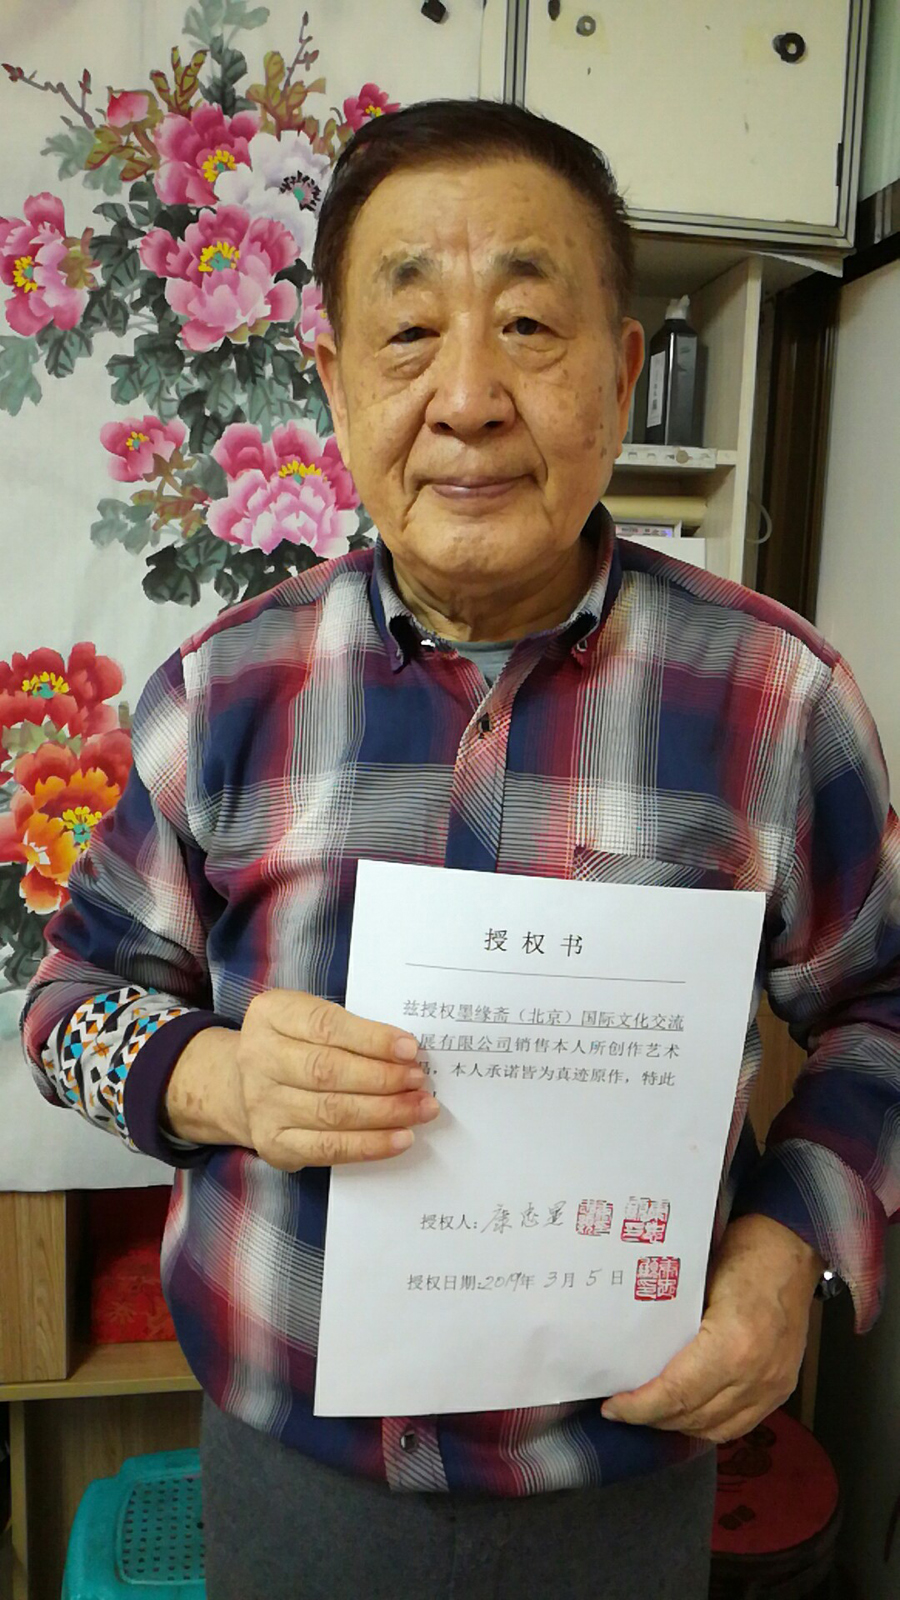 授权书
兹授权墨缘斋（北京）国际文化交流
展有限公司销售本人所创作艺术
品，本人承诺皆为真迹原作，特此
授权人：康惠星
授权日期:2019年3月5日